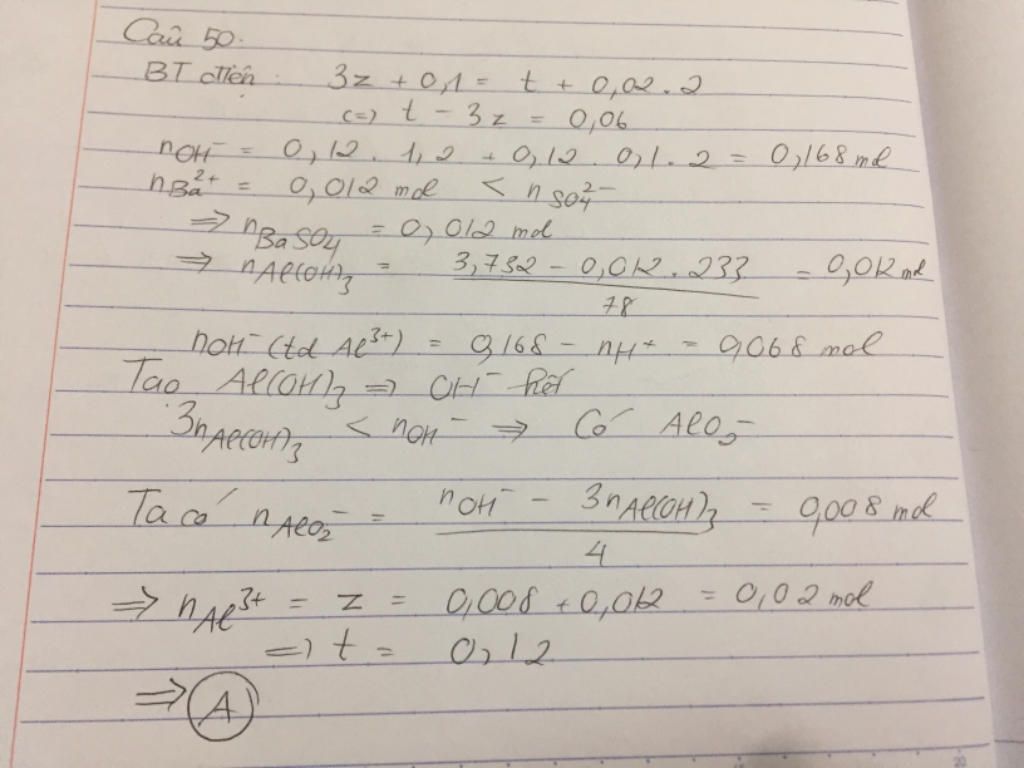 Câu 50.
BT điện : 3z + 0,1 = t + 0,02 . 2
(=) t - 3z = 0,06
nOH⁻ = 0,12 . 1,2 + 0,12 . 0,1 . 2 = 0,168 mol
nBa²⁺ = 0,012 mol < nSO₄²⁻
=> nBaSO₄ = 0,012 mol
=> nAl(OH)₃ = (3,732 - 0,012 . 233) / 78 = 0,012 mol
nOH⁻ (td Al³⁺) = 0,168 - nH⁺ = 0,068 mol
Tạo Al(OH)₃ => OH⁻ hết
3nAl(OH)₃ < nOH⁻ => Có AlO₂⁻
Ta có nAlO₂⁻ = (nOH⁻ - 3nAl(OH)₃) / 4 = 0,008 mol
=> nAl³⁺ = z = 0,008 + 0,012 = 0,02 mol
=> t = 0,12
=> A
20